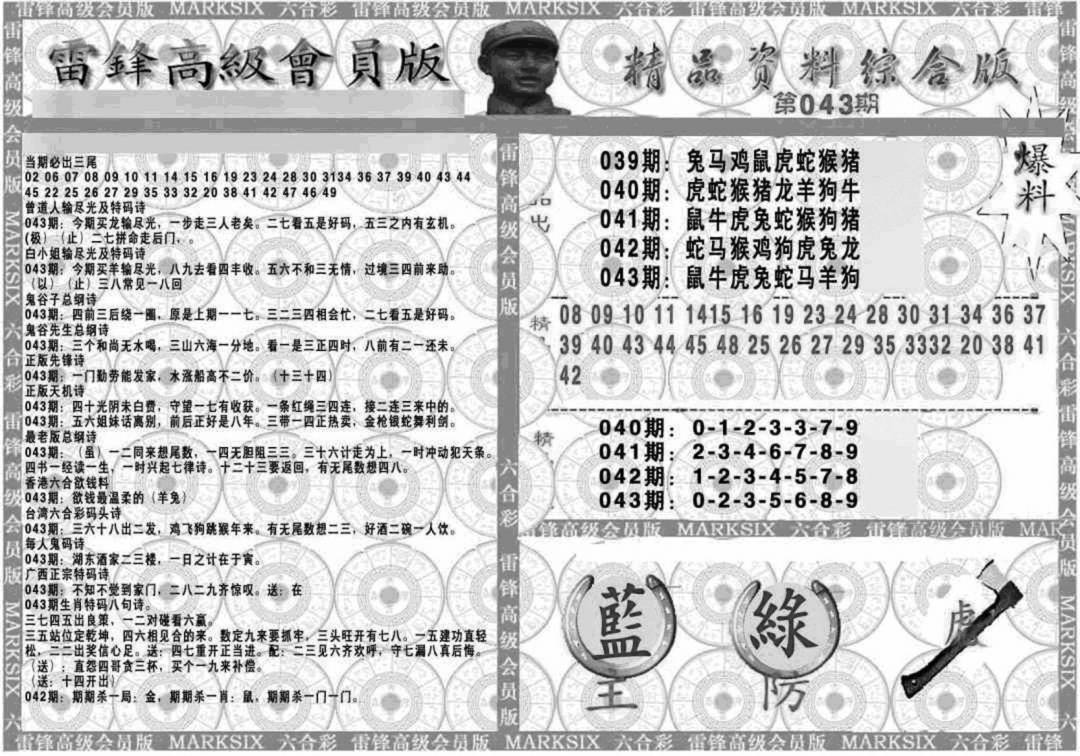 雷锋高级会员版 MARKSIX 六合彩 雷锋高级会员版 MARKSIX 六合彩 雷锋高级会员版 MARKSIX 六合彩 雷锋
雷鋒高級會員版
精品资料综合版
第043期
爆料
当期必出三尾
02 06 07 08 09 10 11 14 15 16 19 23 24 28 30 3134 36 37 39 40 43 44
45 22 25 26 27 29 35 33 32 20 38 41 42 47 46 49
曾道人输尽光及特码诗
043期：今期买龙输尽光，一步走三人老矣。二七看五是好码，五三之内有玄机。
(极）（止）二七拼命走后门，。
白小姐输尽光及特码诗
043期：今期买羊输尽光，八九去看四丰收。五六不和三无情，过境三四前来助。
（以）（止）三八常见一八回
鬼谷子总纲诗
043期：四前三后绕一圈，原是上期一一七。三二三四相会忙，二七看五是好码。
鬼谷先生总纲诗
043期：三个和尚无水喝，三山六海一分地。看一是三正四时，八前有二一还未。
正版先锋诗
043期：一门勤劳能发家，水涨船高不二价。（十三十四）
正版天机诗
043期：四十光阴未白费，守望一七有收获。一条红绳三四连，接二连三来中的。
043期：五六姐妹话离别，前后正好是八年。三带一四正热卖，金枪银蛇舞利剑。
最老版总纲诗
043期：（虽）一二同来想尾数，一四无胆阻三三。三十六计走为上，一时冲动犯天条。
四书一经读一生，一时兴起七律诗。十二十三要返回，有无尾数想四八。
香港六合欲钱料
043期：欲钱最温柔的（羊兔）
台湾六合彩码头诗
043期：三六十八出二发，鸡飞狗跳猴年来。有无尾数想二三，好酒二碗一人饮。
每人鬼码诗
043期：湖东酒家二三楼，一日之计在于寅。
广西正宗特码诗
043期：不知不觉到家门，二八二九齐惊叹。送：在
043期生肖特码八句诗。
三七四五出良策，一二对碰看六赢。
三五站位定乾坤，四六相见合的来。数定九来要抓牢，三头旺开有七八。一五建功直轻
松，二二出奖信心足。送：四七重开正当进。配：二三见六齐欢呼，守七漏八真后悔。
（送）：直怨四哥贪三杯，买个一九来补偿。
（送：十四开出）
042期：期期杀一局：金，期期杀一肖：鼠，期期杀一门一门。
039期：兔马鸡鼠虎蛇猴猪
040期：虎蛇猴猪龙羊狗牛
041期：鼠牛虎兔蛇猴狗猪
042期：蛇马猴鸡狗虎兔龙
043期：鼠牛虎兔蛇马羊狗
精
08 09 10 11 1415 16 19 23 24 28 30 31 34 36 37
39 40 43 44 45 48 25 26 27 29 35 3332 20 38 41
42
精
040期：0-1-2-3-3-7-9
041期：2-3-4-6-7-8-9
042期：1-2-3-4-5-7-8
043期：0-2-3-5-6-8-9
雷锋高级会员版 MARKSIX 六合彩 雷锋高级会员版 MARK
藍
綠
虎
主
防
雷锋高级会员版 MARKSIX 六合彩 雷锋高级会员版 MARKSIX 六合彩 雷锋高级会员版 MARKSIX 六合彩 雷锋